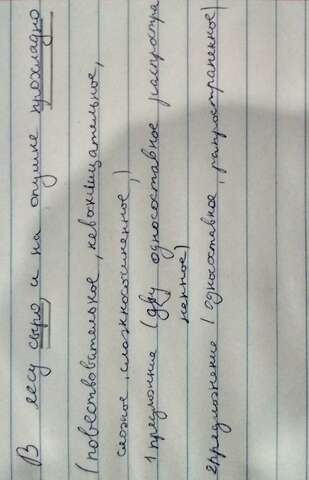 В лесу сыро, и на опушке прохладно
(повествовательное, невосклицательное,
сложное, сложносочиненное,)
1 предложние (дву односоставное распростра
ненное)
2предложнение (односоставное, рапространенное)